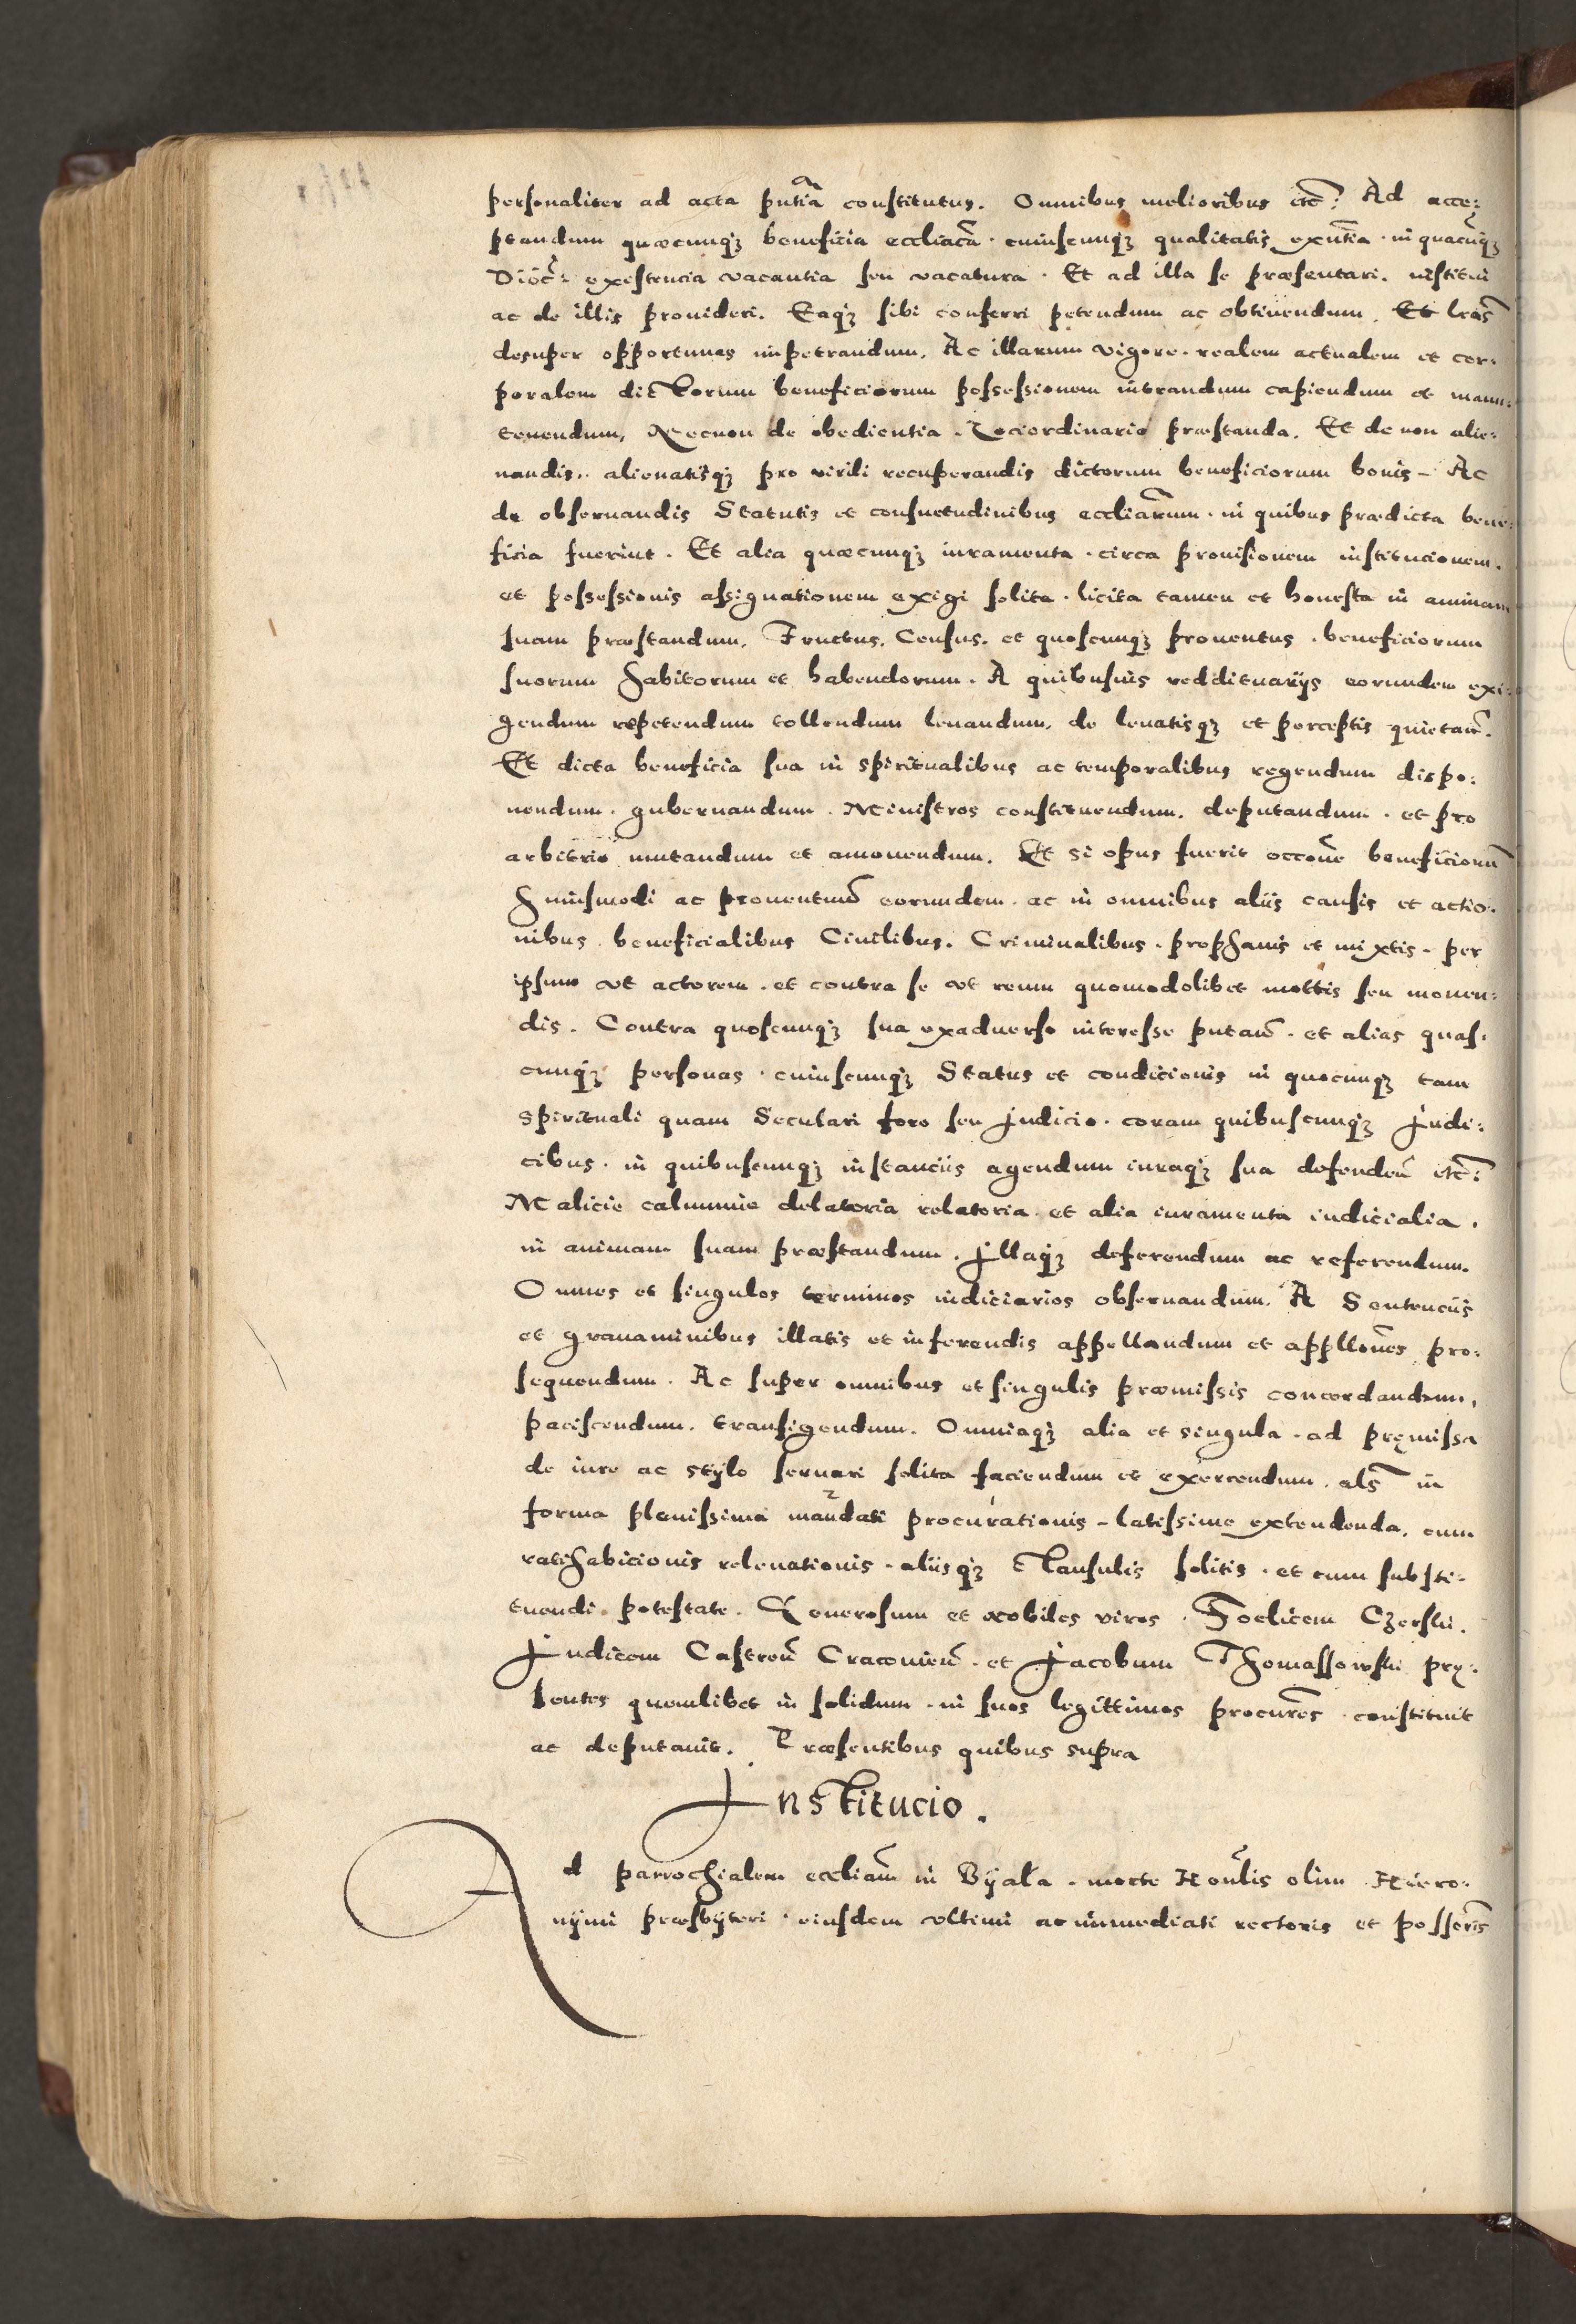 personaliter ad acta pn̄tia constitutus. Omnibus melioribus etc̃: Ad acce:
ptandum quæcunqꝫ beneficia eccliacā. cuiuscunqꝫ qualitatis exn̄tia. in quacūqꝫ
Dioc̄: existencia vacantia seu vacatura. Et ad illa se præsentari. institui
ac de illis prouideri. Eaqꝫ sibi conferri petendum ac obtinendum. Et lrās
desuper opportunas impetrandum. Ac illarum vigore. realem actualem et cor:
poralem dictorum beneficiorum possessionem intrandum capiendum et manu:
tenendum, Necnon de obedientia. Lociordinario præstanda. Et de non alie:
nandis. alienatisqꝫ pro virili recuperandis dictorum beneficiorum bonis. Ac
de obseruandis Statutis et consuetudinibus eccliārum. in quibus prædicta bene:
ficia fuerint. Et alia quæcunqꝫ iuramenta. circa prouisionem institucionem.
et possessionis assignationem exigi solita. licita tamen et honesta in animam
suam præstandum. Fructus. Census. et quoscunqꝫ prouentus. beneficiorum
suorum habitorum et habendorum. A quibusuis reddituarijs eorundem exi:
gendum repetendum tollendum leuandum. de leuatisqꝫ et perceptis quietan̄.
Et dicta beneficia sua in spiritualibus ac temporalibus regendum dispo:
nendum. gubernandum. Ministros constituendum. deputandum. et pro
arbitrio mutandum et amouendum. Et si opus fuerit occōne beneficiorū
huiusmodi ac prouentuū eorundem. ac in omnibus aliis causis et actio:
nibus. beneficialibus Ciuilibus. Criminalibus. prophanis et mixtis. per
ipsum vt actorem. et contra se vt reum quomodolibet mottis seu mouen:
dis. Contra quoscunqꝫ sua exaduerso interesse putan̄. et alias quas:
cunqꝫ personas. cuiuscunqꝫ Status et condicionis in quocunqꝫ tam
spirituali quam Seculari foro seu Judicio. coram quibuscunqꝫ Judi:
cibus. in quibuscunqꝫ instanciis agendum iuraqꝫ sua defendeñ etc̃:
Malicie calumnie delatoria relatoria. et alia iuramenta iudicialia.
in animam suam præstandum. Jllaqꝫ deferendum ac referendum.
Omnes et singulos terminos iudiciarios obseruandum. A Sentenciis
et grauaminibus illatis et inferendis appellandum et appllōnes pro:
sequendum. Ac super omnibus et singulis præmissis concordandum,
paciscendum. transigendum. Omniaqꝫ alia et singula. ad pręmissa
de iure ac stylo seruari solita faciendum et exercendum. als̄ in
forma plenissima mandati procurationis. latissime extendenda. cum
ratihabicionis releuationis. aliisqꝫ Clausulis solitis. et cum substi:
tuendi. potestate. Generosum et nobiles viros. Foelicem Czerski.
Judicem Castreñ Cracouieñ. et Jacobum Thomassowski prę:
sentes quemlibet in solidum. in suos legittimos procurēs. constituit
ac deputauit. Præsentibus quibus supra
Institucio.
Ad parrochialem eccliām in Byała. morte Honl̄is olim Hiero:
nymi præsbyteri. eiusdem vltimi ac immediati rectoris et possoris̄